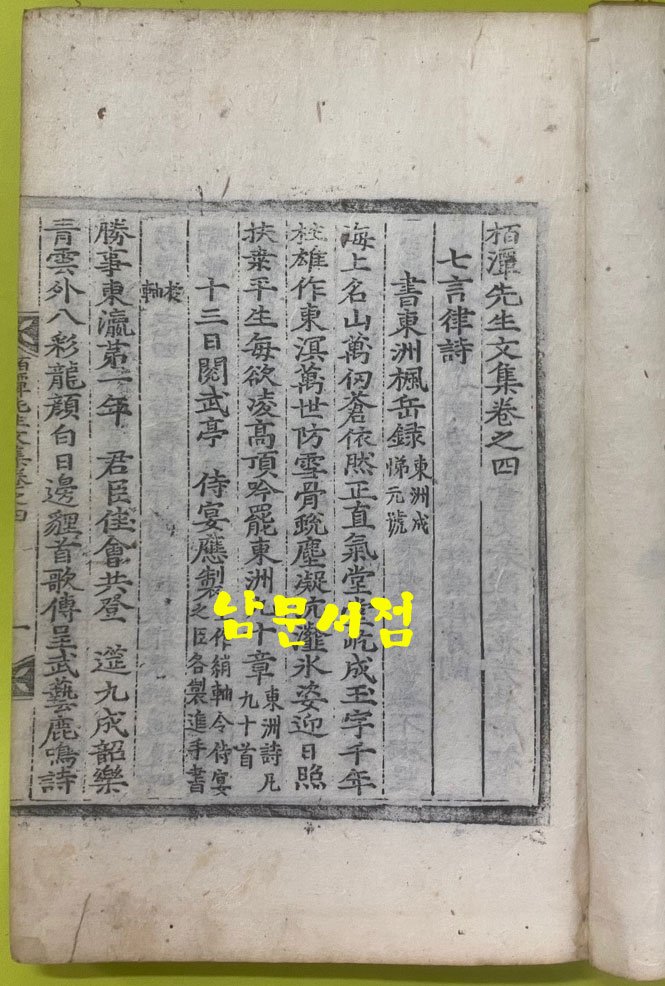 栢潭先生文集卷之四
七言律詩
書東洲楓岳録 東洲成悌元號
海上名山萬仞蒼依然正直氣堂堂屹成玉宇千年
柱雄作東溟萬世防雪骨蛻塵凝沆瀣氷姿迎日照
扶桒平生每欲凌高頂吟罷東洲九十章 東洲詩凡九十首
十三日閱武亭 侍宴應製 作綃軸令侍宴之臣各製進手書
於軸
勝事東瀛第一年 君臣佳會共登 筵九成韶樂
青雲外八彩龍顔白日邊貍首歌傳呈武藝鹿鳴詩
栢潭先生文集卷之四 一
남문서점